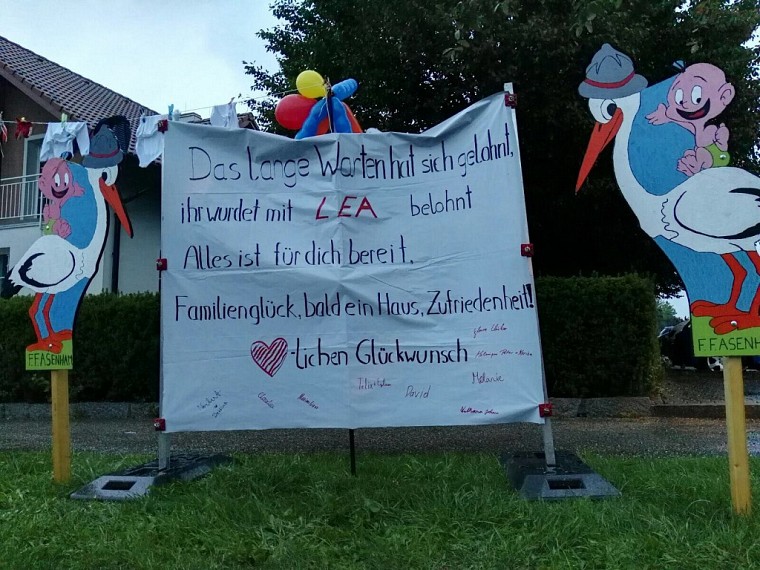 Das lange Warten hat sich gelohnt,
ihr wurdet mit LEA belohnt
Alles ist für dich bereit.
Familienglück, bald ein Haus, Zufriedenheit!
-lichen Glückwunsch
David
Melanie
F.FASENHAM
F.FASENHAM